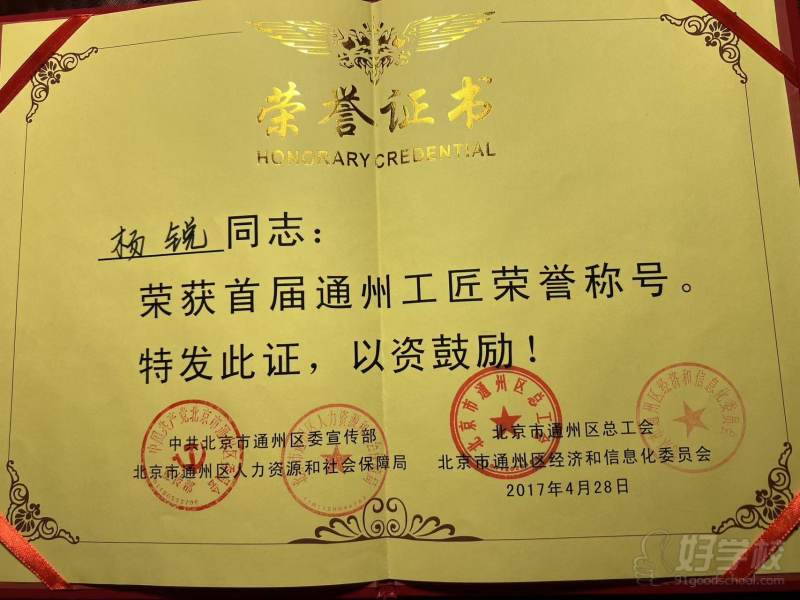 荣誉证书
HONORARY CREDENTIAL
杨锐同志：
荣获首届通州工匠荣誉称号。
特发此证，以资鼓励！
中共北京市通州区委宣传部
北京市通州区人力资源和社会保障局
北京市通州区总工会
北京市通州区经济和信息化委员会
2017年4月28日
北京市通州区总工会
好学校
91goodschool.com